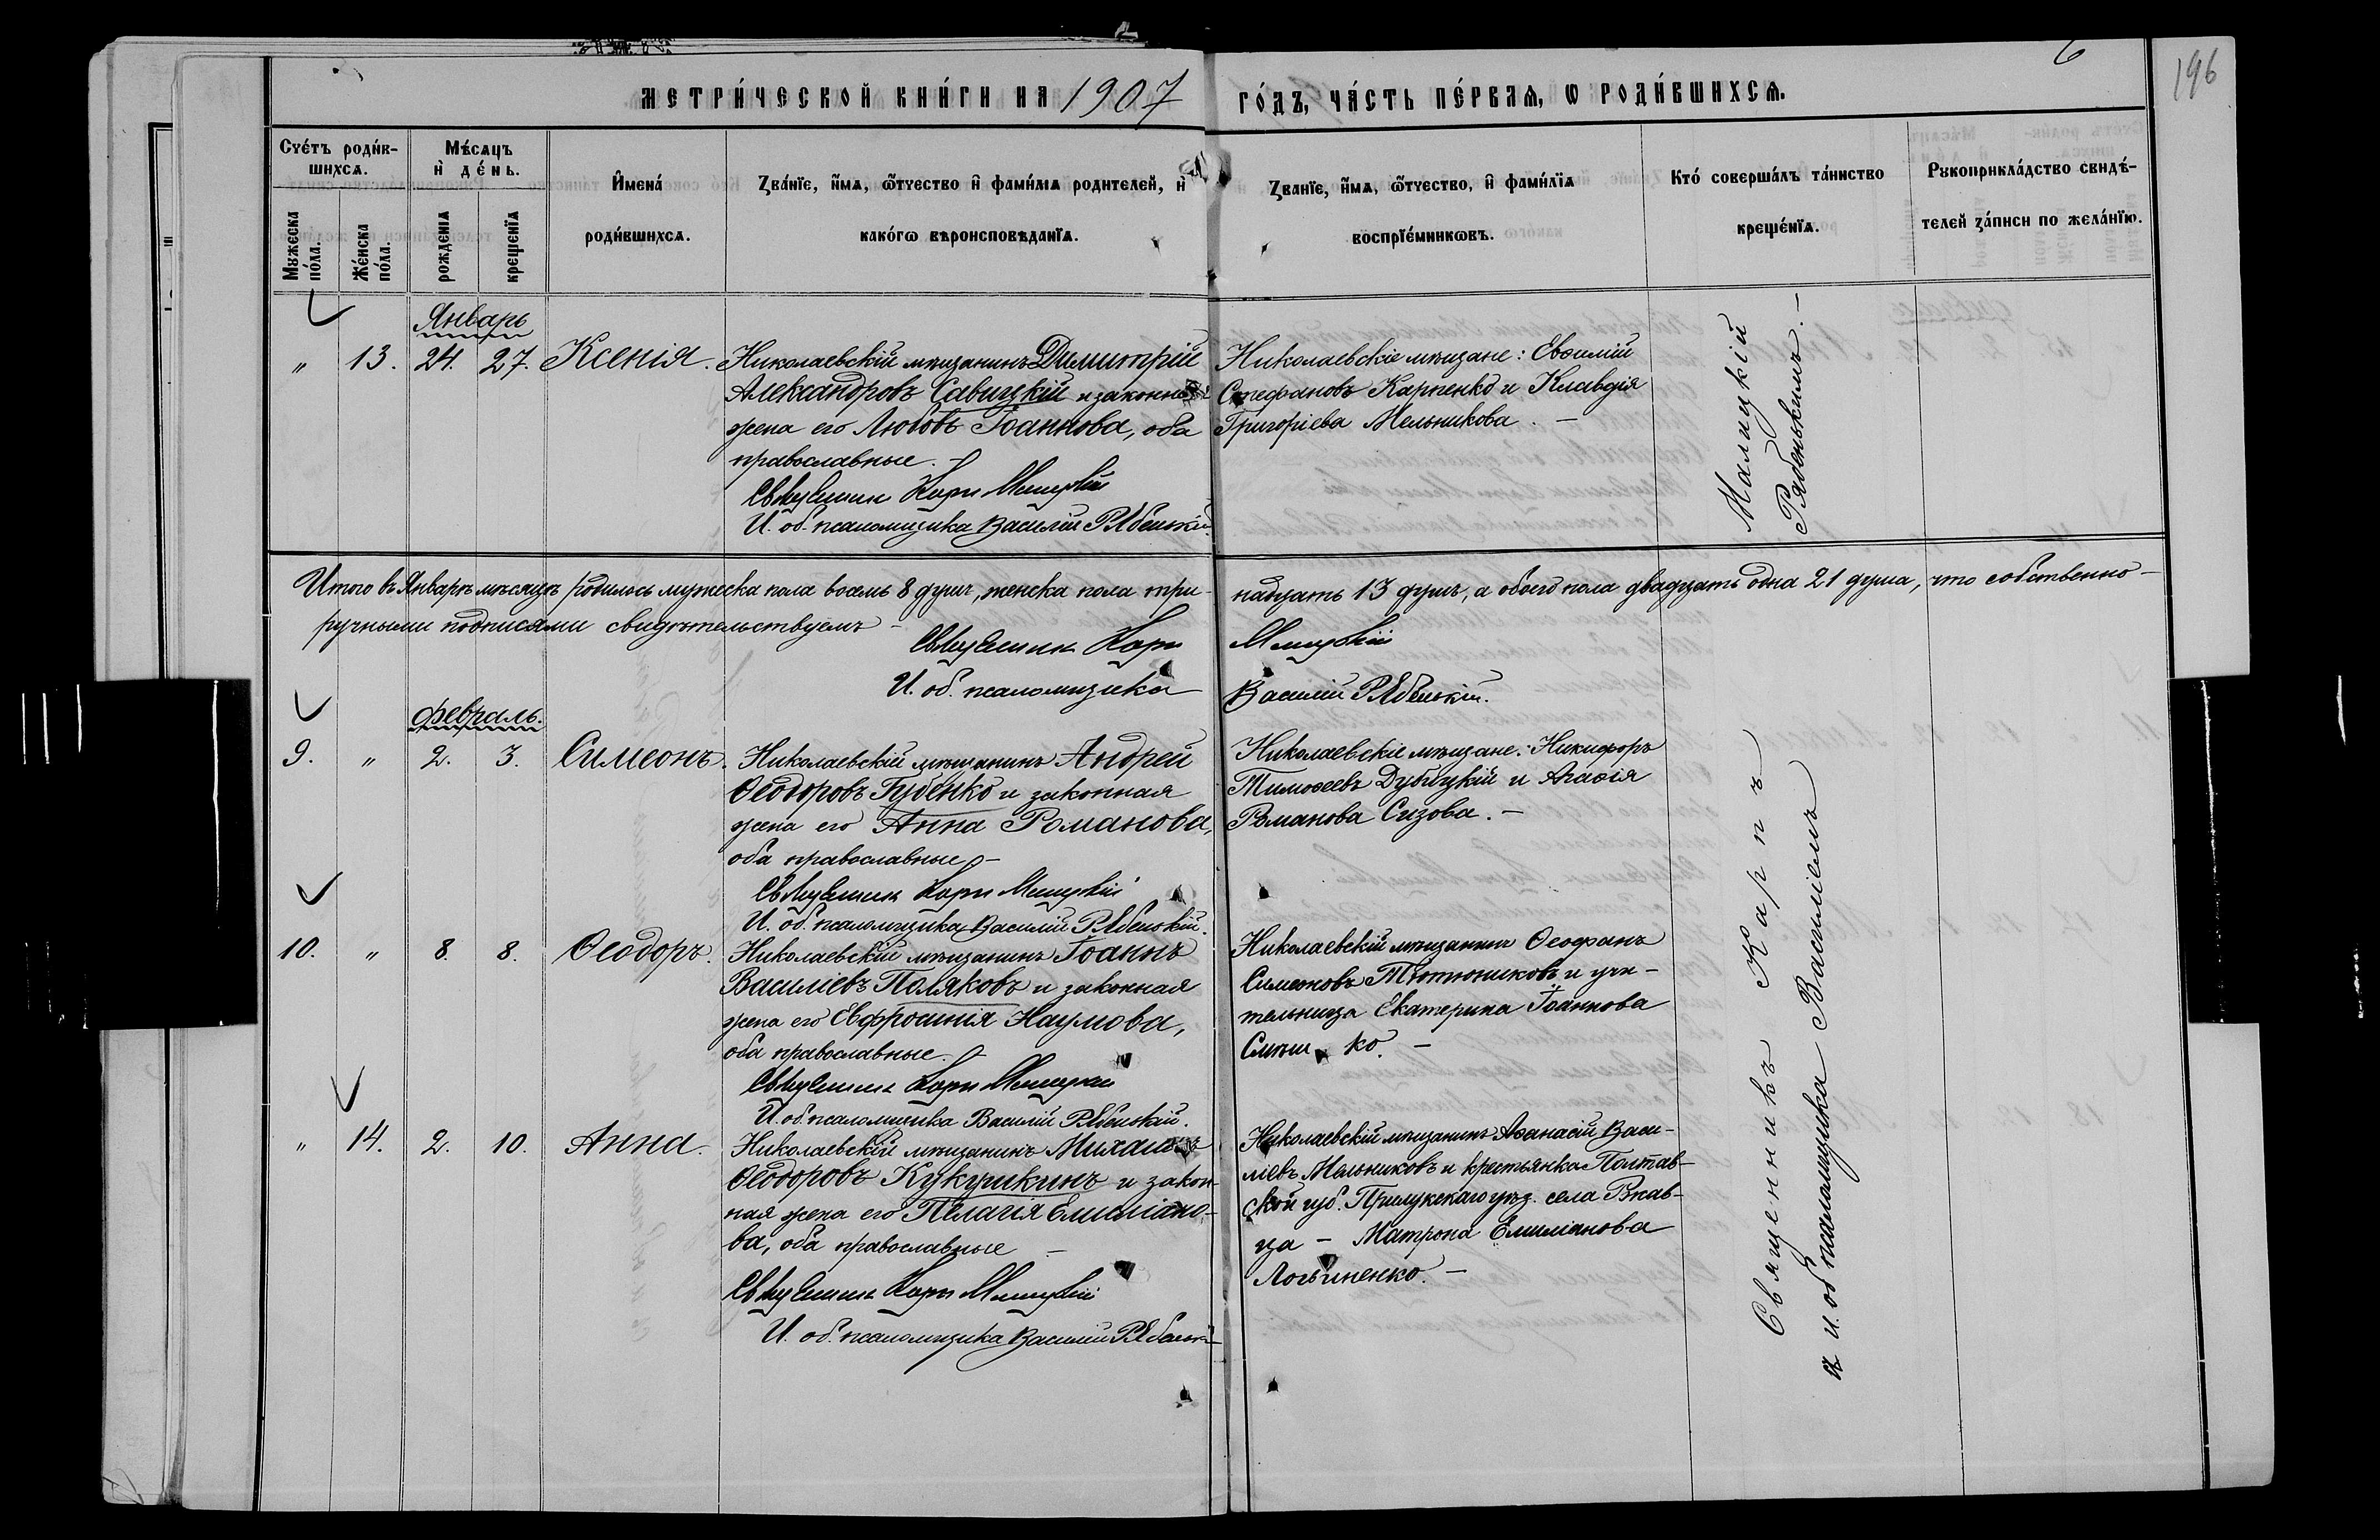 6
196
МЕТРИ́ЧЕСКОЙ КНИ́ГИ НА 1907 ГО́ДЪ, ЧА́СТЬ ПЕ́РВАѦ, Ѡ РОДИ́ВШИХСѦ.
Счетъ роди́в-
шихсѧ.
Мꙋжеска
по́ла.
Же́нска
по́ла.
Мѣ́сѧцъ
и̑ де́нь.
рожденїѧ
крещенїѧ
И̑мена́
роди́вшихсѧ.
Зва́нїе, и̑мѧ, ѻ҆́тчество и̑ фами́лїѧ родителей, и̑
како́гѡ вѣроисповѣданїѧ.
Званїе, и̑мѧ, ѻ҆́тчество, и̑ фами́лїѧ
воспрїе́мниковъ.
Кто́ соверша́лъ та́инство
креще́нїѧ.
Рꙋкоприкла́дство свидѣ́-
телей за́писи по жела́нїю.
Январь
" 13. 24. 27. Ксенія.
Николаевскій мѣщанинъ Димитрій
Александровъ Савицкій и законная
жена его Любовь Іоаннова, оба
православные. –
Священникъ Карпъ Малицкій
И. об. псаломщика Василій Рябенькій.
Николаевскіе мѣщане: Евѳимій
Стефановъ Карпенко и Клавдія
Григоріева Мельникова. –
Итого въ Январѣ мѣсяцѣ родилось мужеска пола восемь 8 душъ, женска пола три-
надцать 13 душъ, а обоего пола двадцать одна 21 душа, что собственно-
ручными подписями свидѣтельствуемъ –
Священникъ Карпъ Малицкій
И. об. псаломщика Василій Рябенькій.
Февраль.
9. " 2. 3. Симеонъ.
Николаевскій мѣщанинъ Андрей
Ѳеодоровъ Губенко и законная
жена его Анна Романова,
оба православные –
Священникъ Карпъ Малицкій
И. об. псаломщика Василій Рябенькій.
Николаевскіе мѣщане: Никифоръ
Тимоѳеевъ Дубицкій и Агаѳія
Романова Сизова. –
10. " 8. 8. Ѳеодоръ.
Николаевскій мѣщанинъ Іоаннъ
Василіевъ Поляковъ и законная
жена его Евфросинія Наумова,
оба православные. –
Священникъ Карпъ Малицкій
И. об. псаломщика Василій Рябенькій.
Николаевскій мѣщанинъ Ѳеофанъ
Симеоновъ Тютюниковъ и учи-
тельница Екатерина Іоаннова
" 14. 2. 10. Анна.
Николаевскій мѣщанинъ Михаилъ
Ѳеодоровъ Кукушкинъ и закон-
ная жена его Пелагія Емиліано-
ва, оба православные –
Священникъ Карпъ Малицкій
И. об. псаломщика Василій Рябенькій
Николаевскій мѣщанинъ Аѳанасій Васи-
ліевъ Мельниковъ и крестьянка Полтав-
ской губ. Прилукскаго уѣз. села Ржав-
ца – Матрона Емиліанова
Логвиненко. –
Священникъ Карпъ Малицкій
съ и. об. псаломщика Василіемъ Рябенькимъ. –